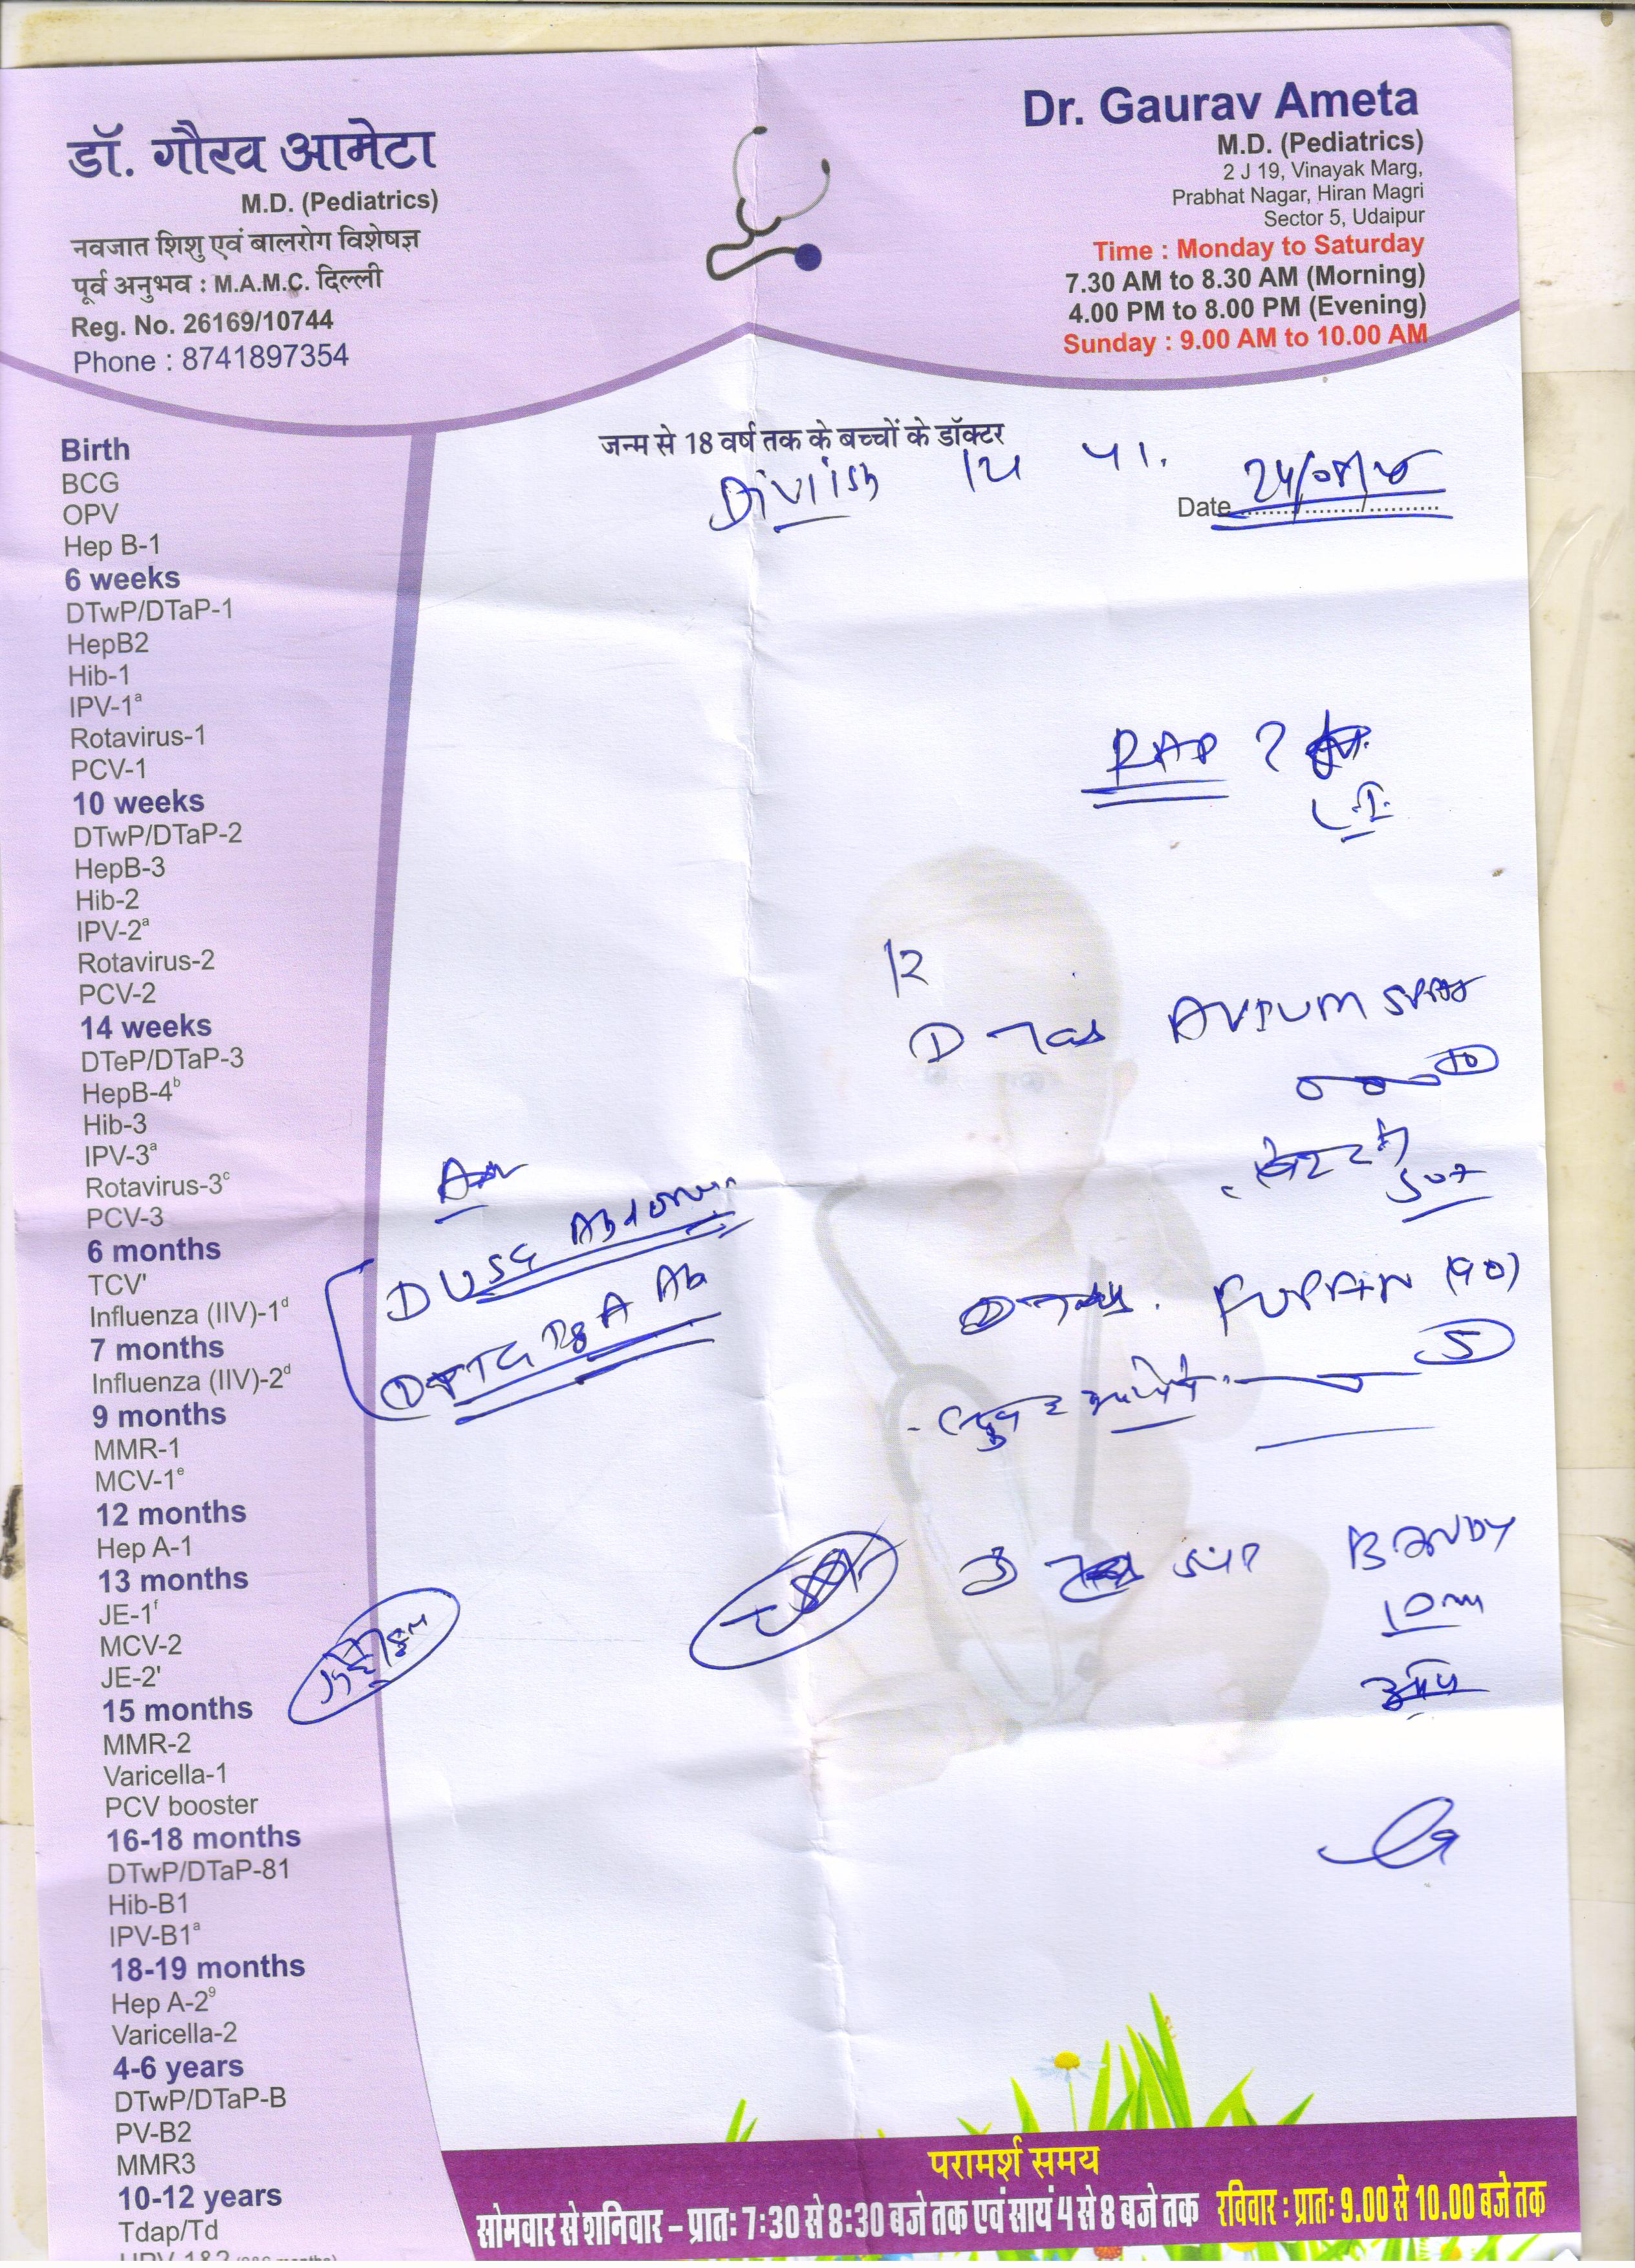 डॉ. गौरव आमेटा
M.D. (Pediatrics)
नवजात शिशु एवं बालरोग विशेषज्ञ
पूर्व अनुभव : M.A.M.C. दिल्ली
Reg. No. 26169/10744
Phone : 8741897354
Dr. Gaurav Ameta
M.D. (Pediatrics)
2 J 19, Vinayak Marg,
Prabhat Nagar, Hiran Magri
Sector 5, Udaipur
Time : Monday to Saturday
7.30 AM to 8.30 AM (Morning)
4.00 PM to 8.00 PM (Evening)
Sunday : 9.00 AM to 10.00 AM
जन्म से 18 वर्ष तक के बच्चों के डॉक्टर
Date
Birth
BCG
OPV
Hep B-1
6 weeks
DTwP/DTaP-1
HepB2
Hib-1
IPV-1ª
Rotavirus-1
PCV-1
10 weeks
DTwP/DTaP-2
HepB-3
Hib-2
IPV-2ª
Rotavirus-2
PCV-2
14 weeks
DTeP/DTaP-3
HepB-4ᵇ
Hib-3
IPV-3ª
Rotavirus-3ᶜ
PCV-3
6 months
TCV'
Influenza (IIV)-1ᵈ
7 months
Influenza (IIV)-2ᵈ
9 months
MMR-1
MCV-1ᵉ
12 months
Hep A-1
13 months
JE-1ᶠ
MCV-2
JE-2'
15 months
MMR-2
Varicella-1
PCV booster
16-18 months
DTwP/DTaP-81
Hib-B1
IPV-B1ª
18-19 months
Hep A-2⁹
Varicella-2
4-6 years
DTwP/DTaP-B
PV-B2
MMR3
10-12 years
Tdap/Td
RAP ?
R
USG
Ab
BANDY
परामर्श समय
सोमवार से शनिवार – प्रातः 7:30 से 8:30 बजे तक एवं सायं 4 से 8 बजे तक रविवार : प्रातः 9.00 से 10.00 बजे तक